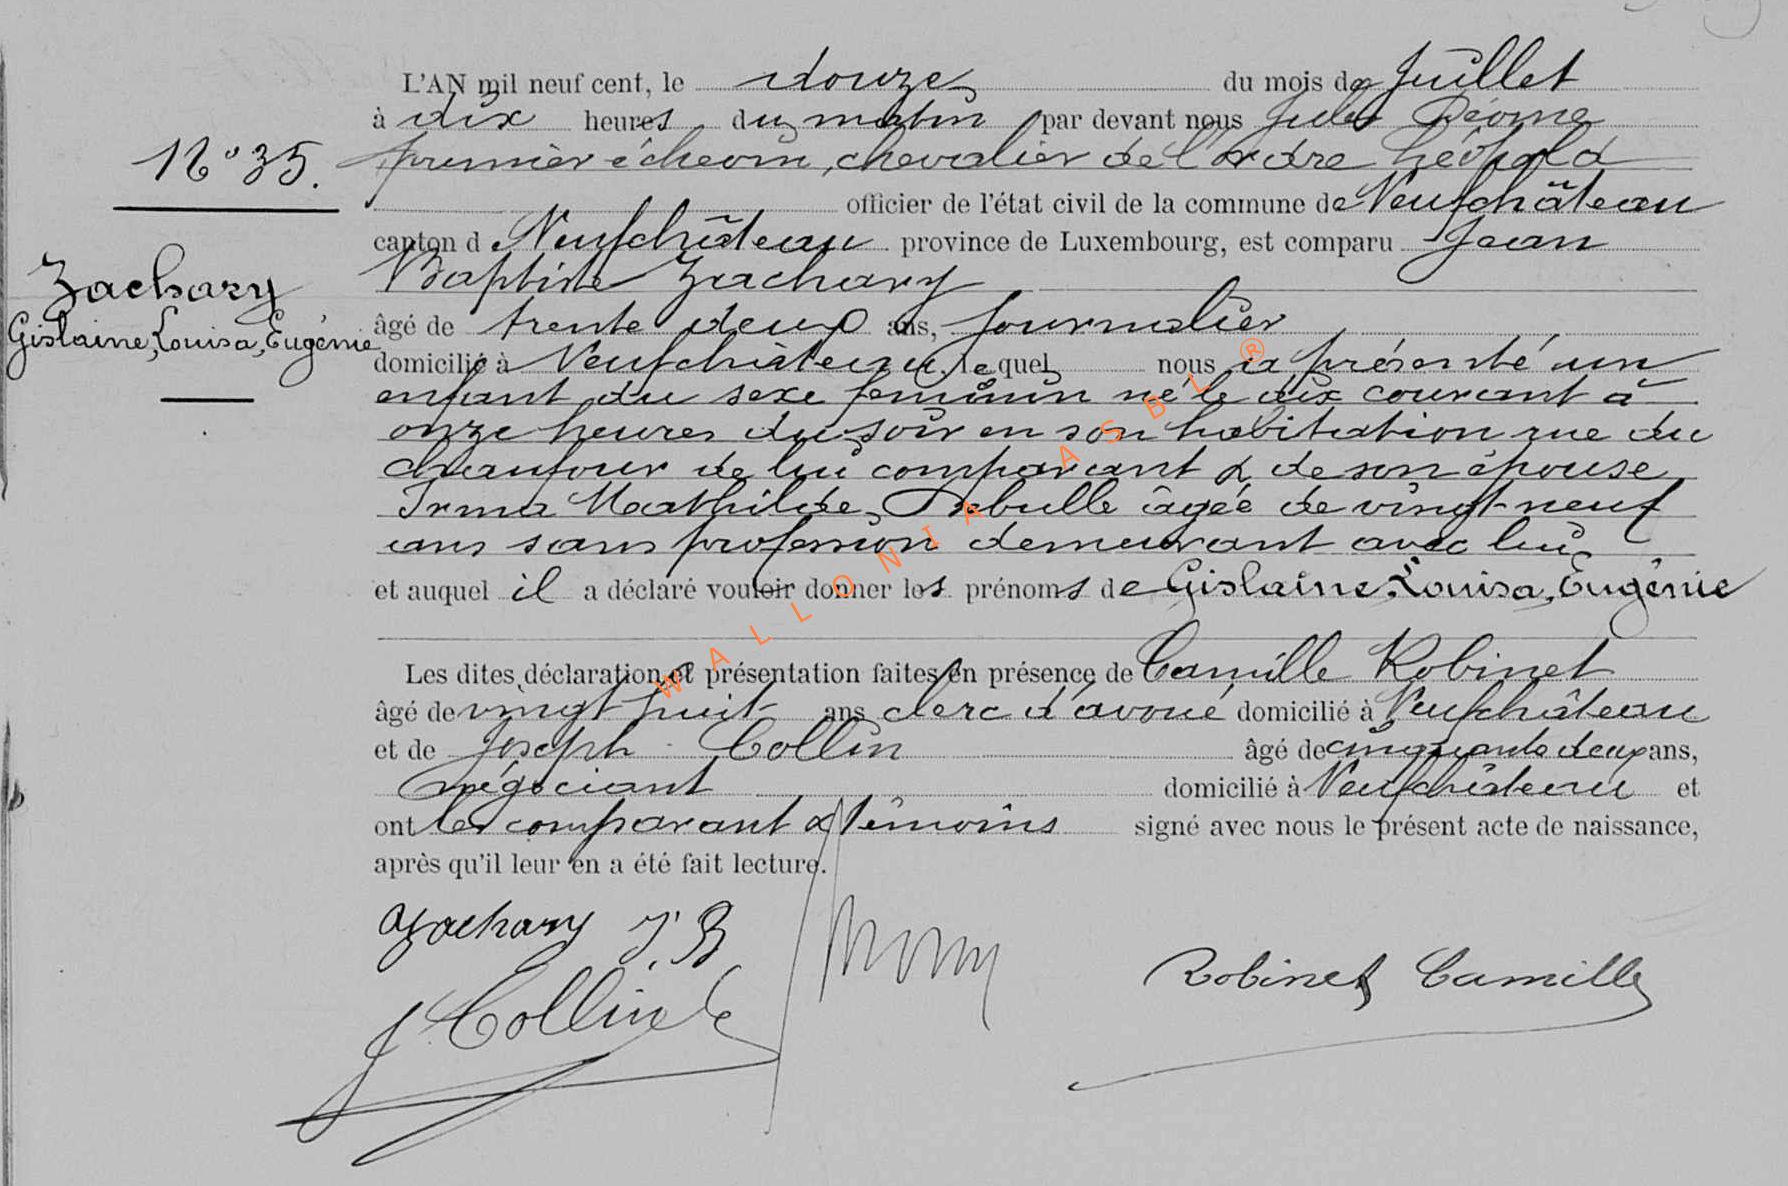 L'AN mil neuf cent, le douze du mois de Juillet
à dix heures du matin par devant nous Jules
N° 35. premier échevin, chevalier de l'ordre Léopold
officier de l'état civil de la commune de Neufchâteau
canton de Neufchâteau province de Luxembourg, est comparu Jean
Zachary
Gislaine, Louisa, Eugénie
Baptiste Zachary
âgé de trente deux ans, journalier
domicilié à Neufchâteau, lequel nous a présenté un
enfant du sexe feminin né le dix courant à
onze heures du soir en son habitation rue du
chaufour de lui comparant & de son épouse
Irma Mathilde âgée de vingt-neuf
ans sans profession demeurant avec lui
et auquel il a déclaré vouloir donner les prénoms de Gislaine, Louisa, Eugénie
Les dites déclaration et présentation faites en présence de Camille Robinet
âgé de vingt huit ans clerc d'avoué domicilié à Neufchâteau
et de Joseph Collin âgé de cinquante deux ans,
négociant domicilié à Neufchâteau et
ont les comparant & témoins signé avec nous le présent acte de naissance,
après qu'il leur en a été fait lecture.
Zachary J. B
J Collin
Robinet Camille
WALLONIA ASBL ®